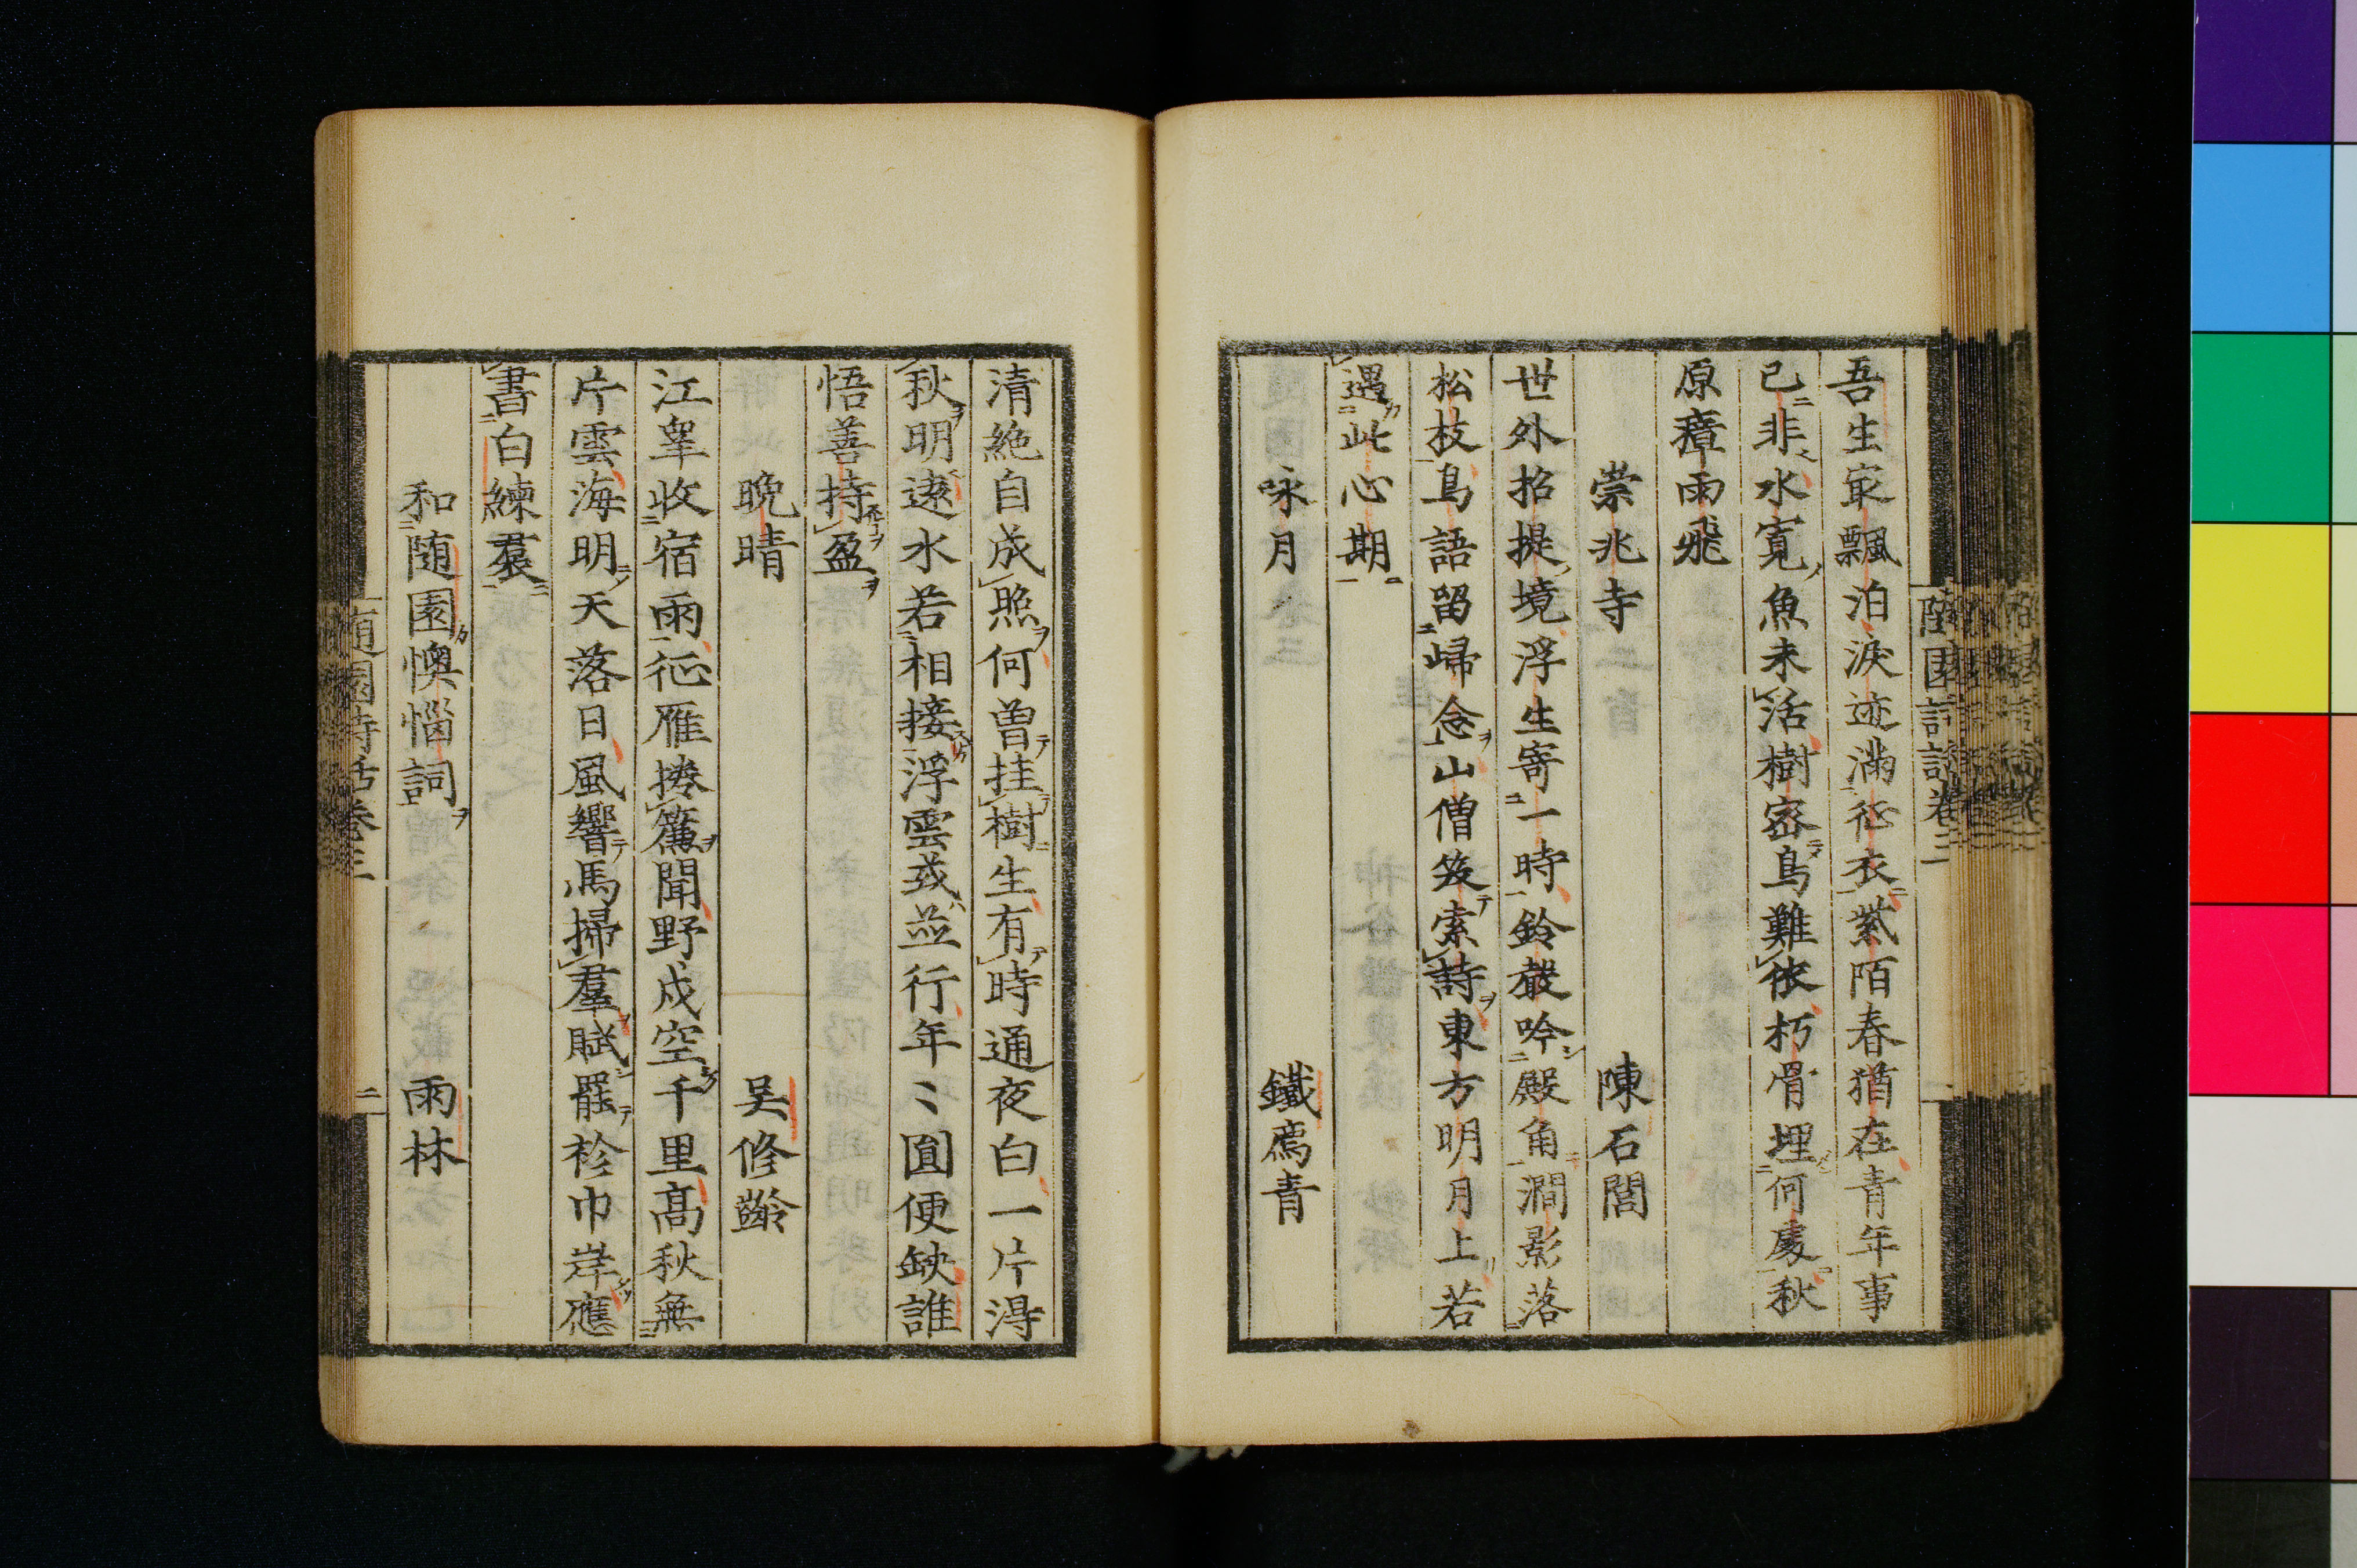 吾生㝡飄泊淚迹滿征衣紫陌春猶在青年事
已非水寬魚未活樹密鳥難依朽骨埋何處秋
原瘴雨飛
崇兆寺 陳石閭
世外招提境浮生寄一時鈴聲吟殿角澗影落
松枝鳥語留歸念山僧笈索詩東方明月上若
遇此心期
咏月 鐵鷹青
清絶自成照何曽挂樹生有時通夜白一片淂
秋明遠水若相接浮雲或並行年〻圓便缺誰
悟善持盈
晩晴 吴修齡
江皐收宿雨征雁捲簾聞野戍空千里髙秋無
片雲海明天落日風響馬掃羣賦罷衫巾岸應
書白練裠
和随園懊惱詞 雨林
随園詩話卷三 二